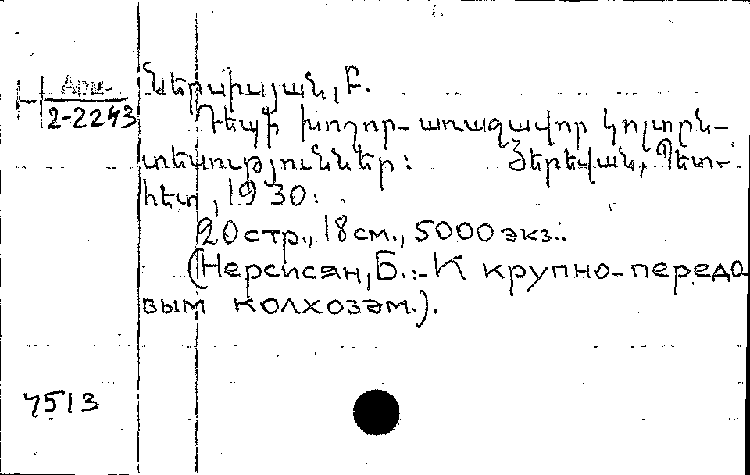 Арм.
2-2243
Ներսիսյան, Բ.
Դեպի խոշոր-առաջավոր կոլտըն-
տեսություններ: Յերեվան, Պետ-
հետ, 1930.
20 стр., 18 см., 5000 экз..
(Нерсисян, Б.:-К крупно-передо
вым колхозам.).
7513